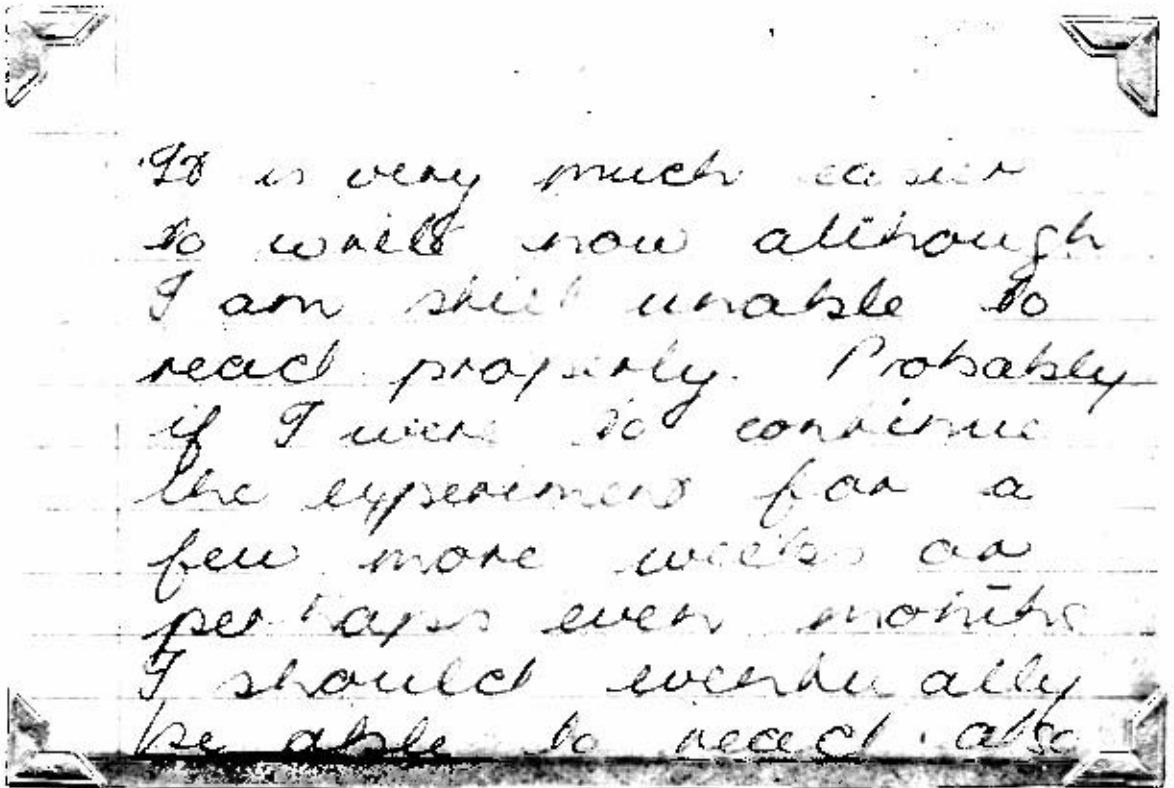 It is very much easier
to write now although
I am still unable to
read properly. Probably
if I were to continue
the experiment for a
few more weeks or
perhaps even months
I should eventually
be able to read also